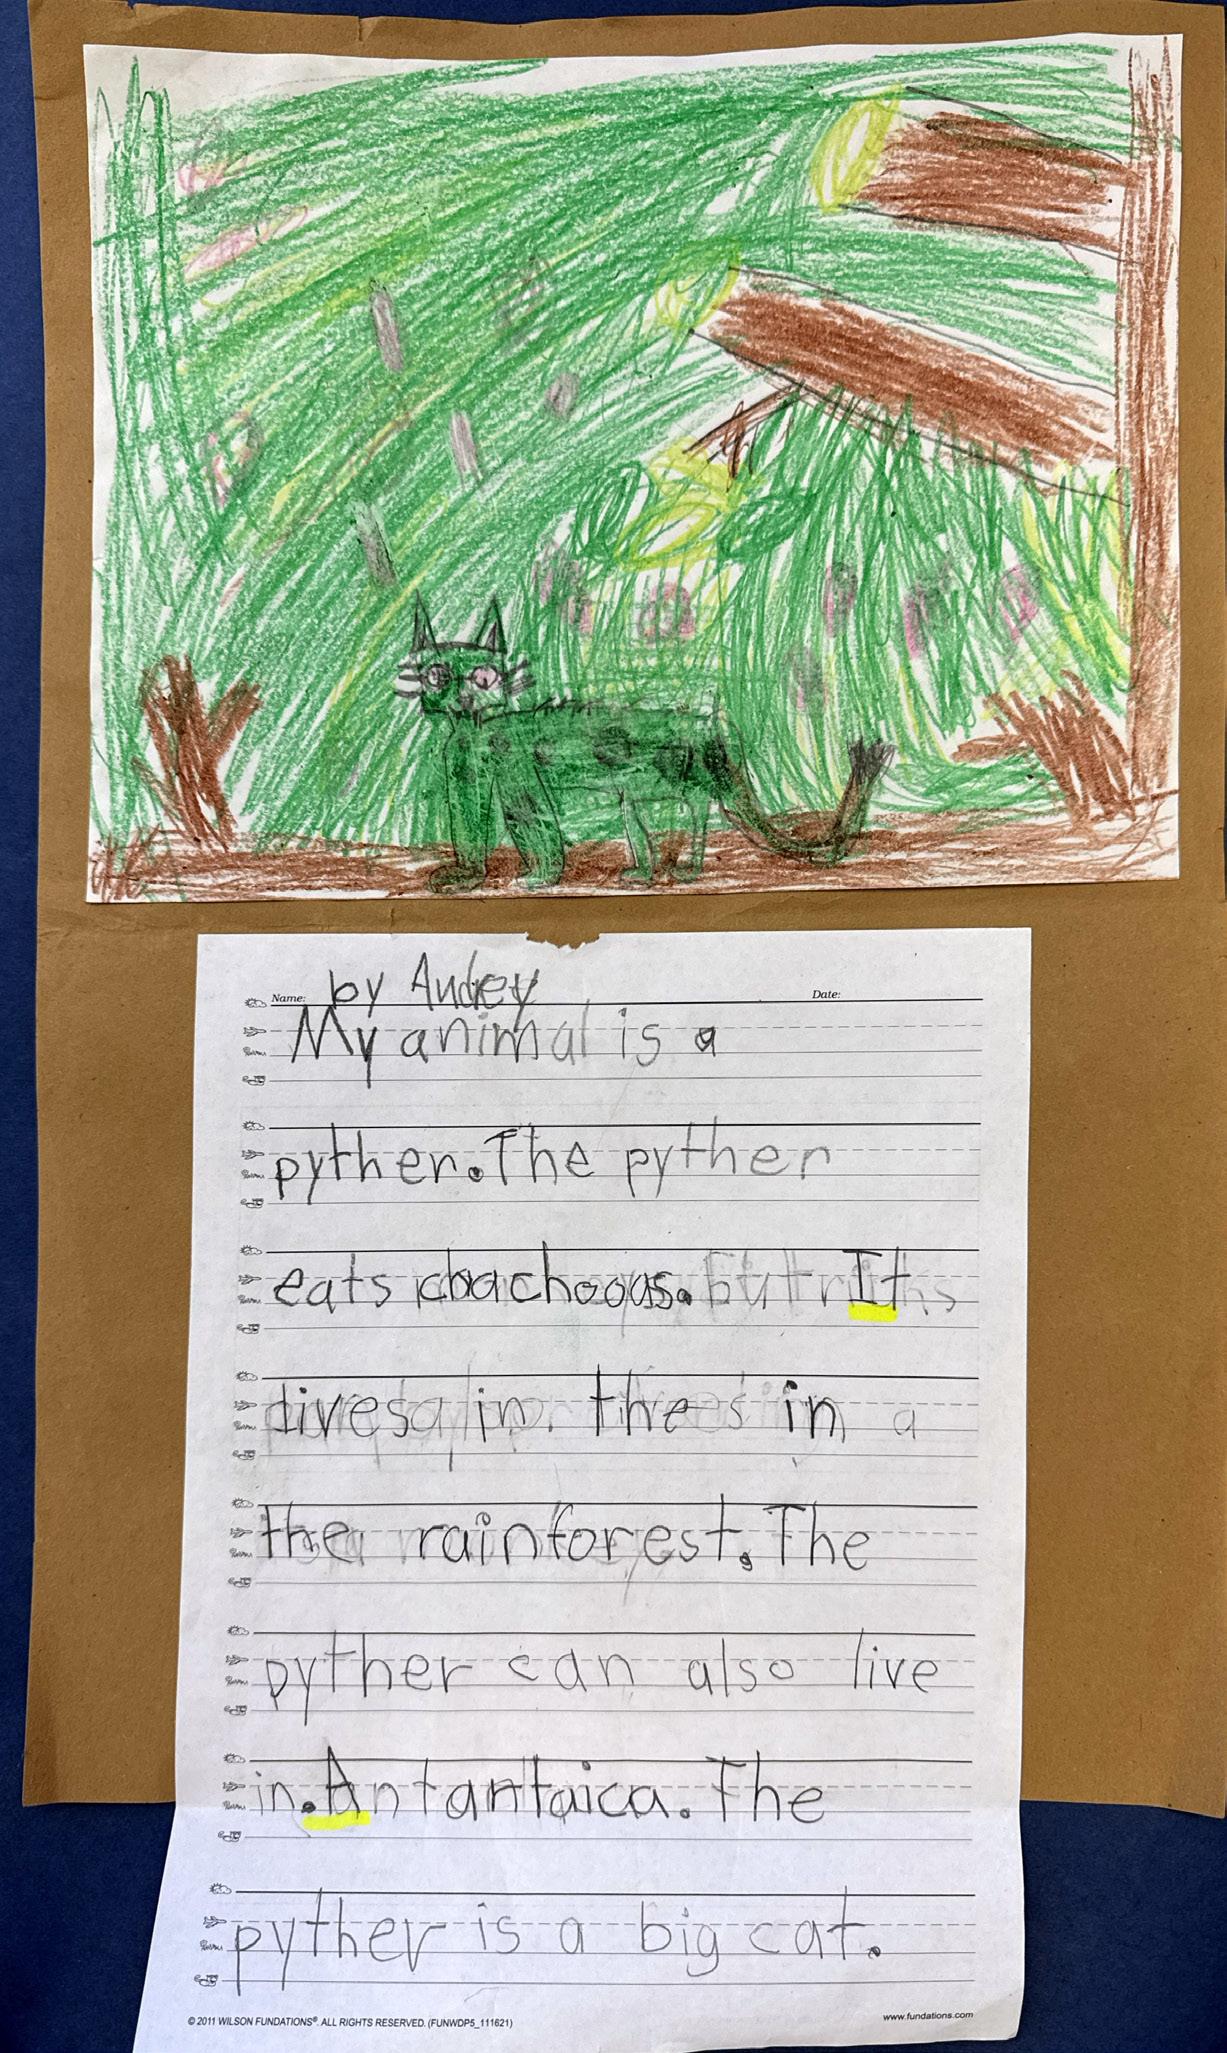 Name: by Audrey Date:
My animal is a
pyther. The pyther
eats chachooos. It
lives in. the in a
the rainforest. The
pyther can also live
in. Antantaica. The
pyther is a big cat.
© 2011 WILSON FUNDATIONS®. ALL RIGHTS RESERVED. (FUNWDP5_111621) www.fundations.com